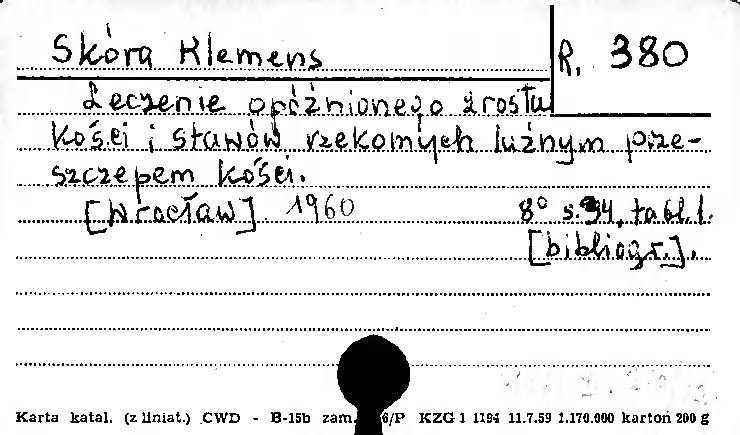 Skóra Klemens
R. 380
Leczenie opóźnionego zrostu
kości i stawów rzekomych luźnym prze-
szczepem kości.
[Wrocław] 1960 8° s. 94, tabl. 1.
[bibliogr.].
Karta katal. (z liniat.) CWD - B-15b zam. 6/P KZG 1 1194 11.7.59 1.170.000 kartoń 200 g